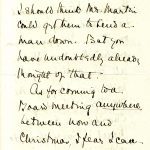 I should think Mr. Martin
could get them to send a
man down. But you
have undoubtedly already
thought of that -
As for coming to a
Board meeting anywhere
between now and
Christmas I fear I can